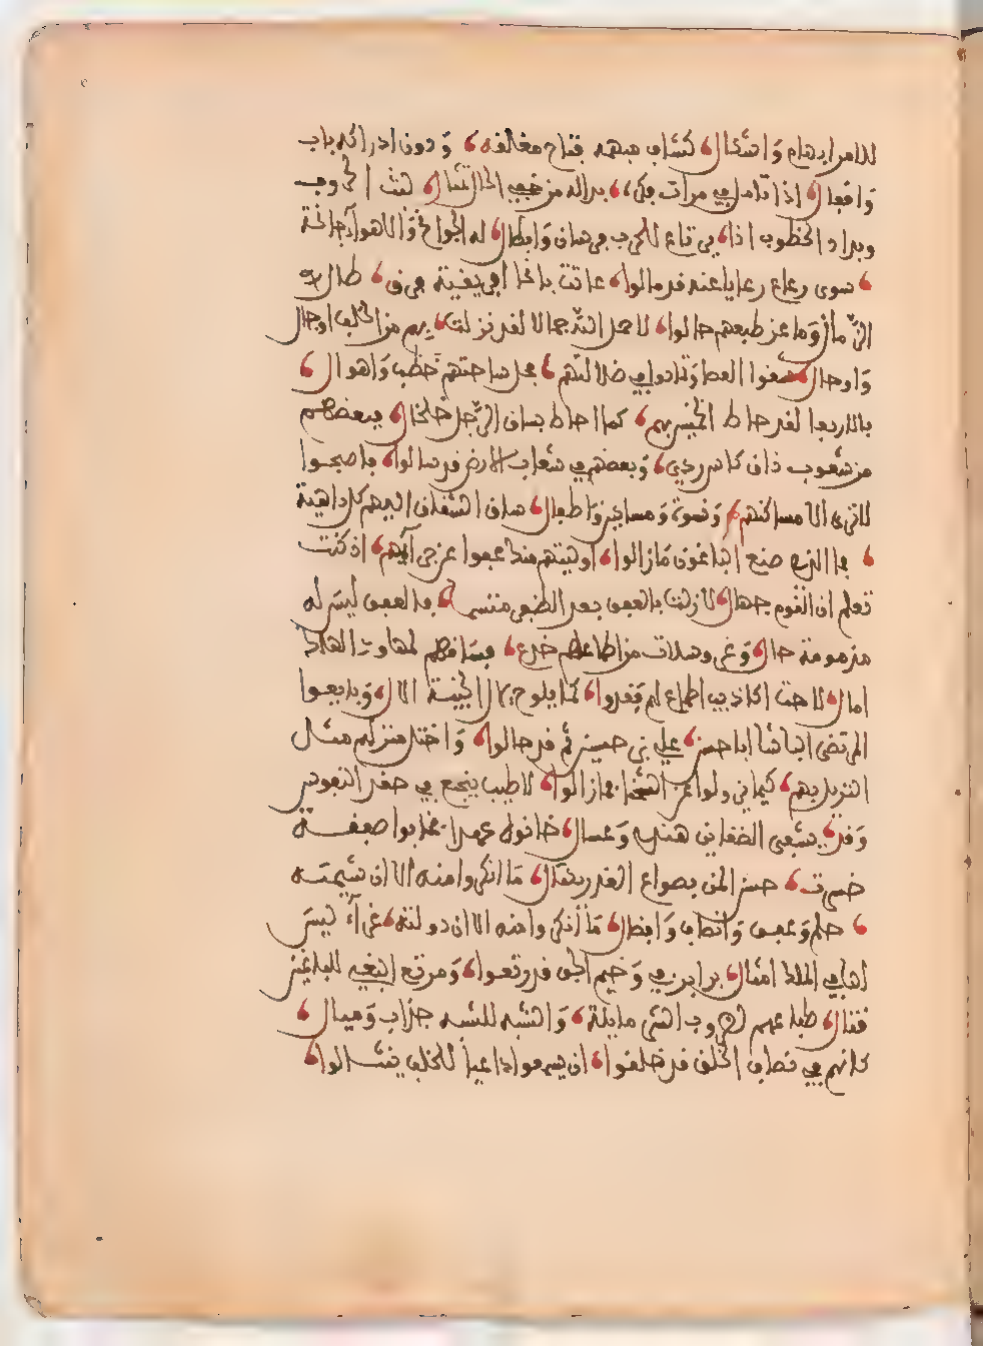 للامر ابهام واشكال كشاف مبهمه فتاح مغلقه ودون ادراكه باب
واقفال اذا تامل في مرآت فكر بداله من خفي الحال تمثال ليث الحروب
وبداد الخطوب اذا في قاع للحرب فرسان وابطال له الجوانح والاهواء جانحة
سوى رعاع رعايا عنه قد مالوا عاثت بانحا افريقية فرق طال
الزمان وما عن طبعهم حالوا لاحمل الله جمالا لقد نزلت بهم من الخلف اوجال
واوحال شقوا العصا وتمادوا في ضلالتهم فحل ساحتهم خطب واهوال
بالاربعا لقد حاط الخميس بهم كما احاط بساق الرجل خلخال فبعضهم
من شعوب ذاق كاس ردي وبعضهم في شعاب الارض قد سالوا فاصبحوا
لا ترى الا مساكنهم ونسوة ومساكين واطفال ساق الشقاق اليهم كل داهية
فما الذي صنع الباغون ما زالوا اوليتهم منك عفوا عن جرائمهم اذ كنت
تعلم ان القوم جهال لا زلت بالعفو بعد الظفر متسما فالعفو ليس له
مذمومة حال وغر وسلات من اطماعهم خدع فساقهم لمهاوت الهلاك
امال لاحت اكاذيب اطماع لهم فغدوا كما يلوح الال وبايعوا
المرتضى الباشا ابا حسن علي بن حسين ثم قد حالوا واختل منزلهم مثال
التزيل بهم كيما في ولوا عن الشحنا فما زالوا لا طيب ينجع في حقد النفوس
وقد يشفى الضغاين هندي وعسال خانوك عهدا فخابوا صفقة
خسرت حسن المنى بصواع الغدر يكتال ما انكروا منه الا ان شيمته
حلم وعفو وانصاف وافضال ما انكروا منه الا ان دولته غراء ليس
لها في الملك امثال برابر في وخيم الجور قد رتعوا ومرتع البغي للباغين
قتال طباعهم لضروب الشر مايلة والشبه للشبه جذاب وميال
كانهم في قصاف الخلف قد خلقوا ان يسمعوا داعيا للخلف ينثالوا